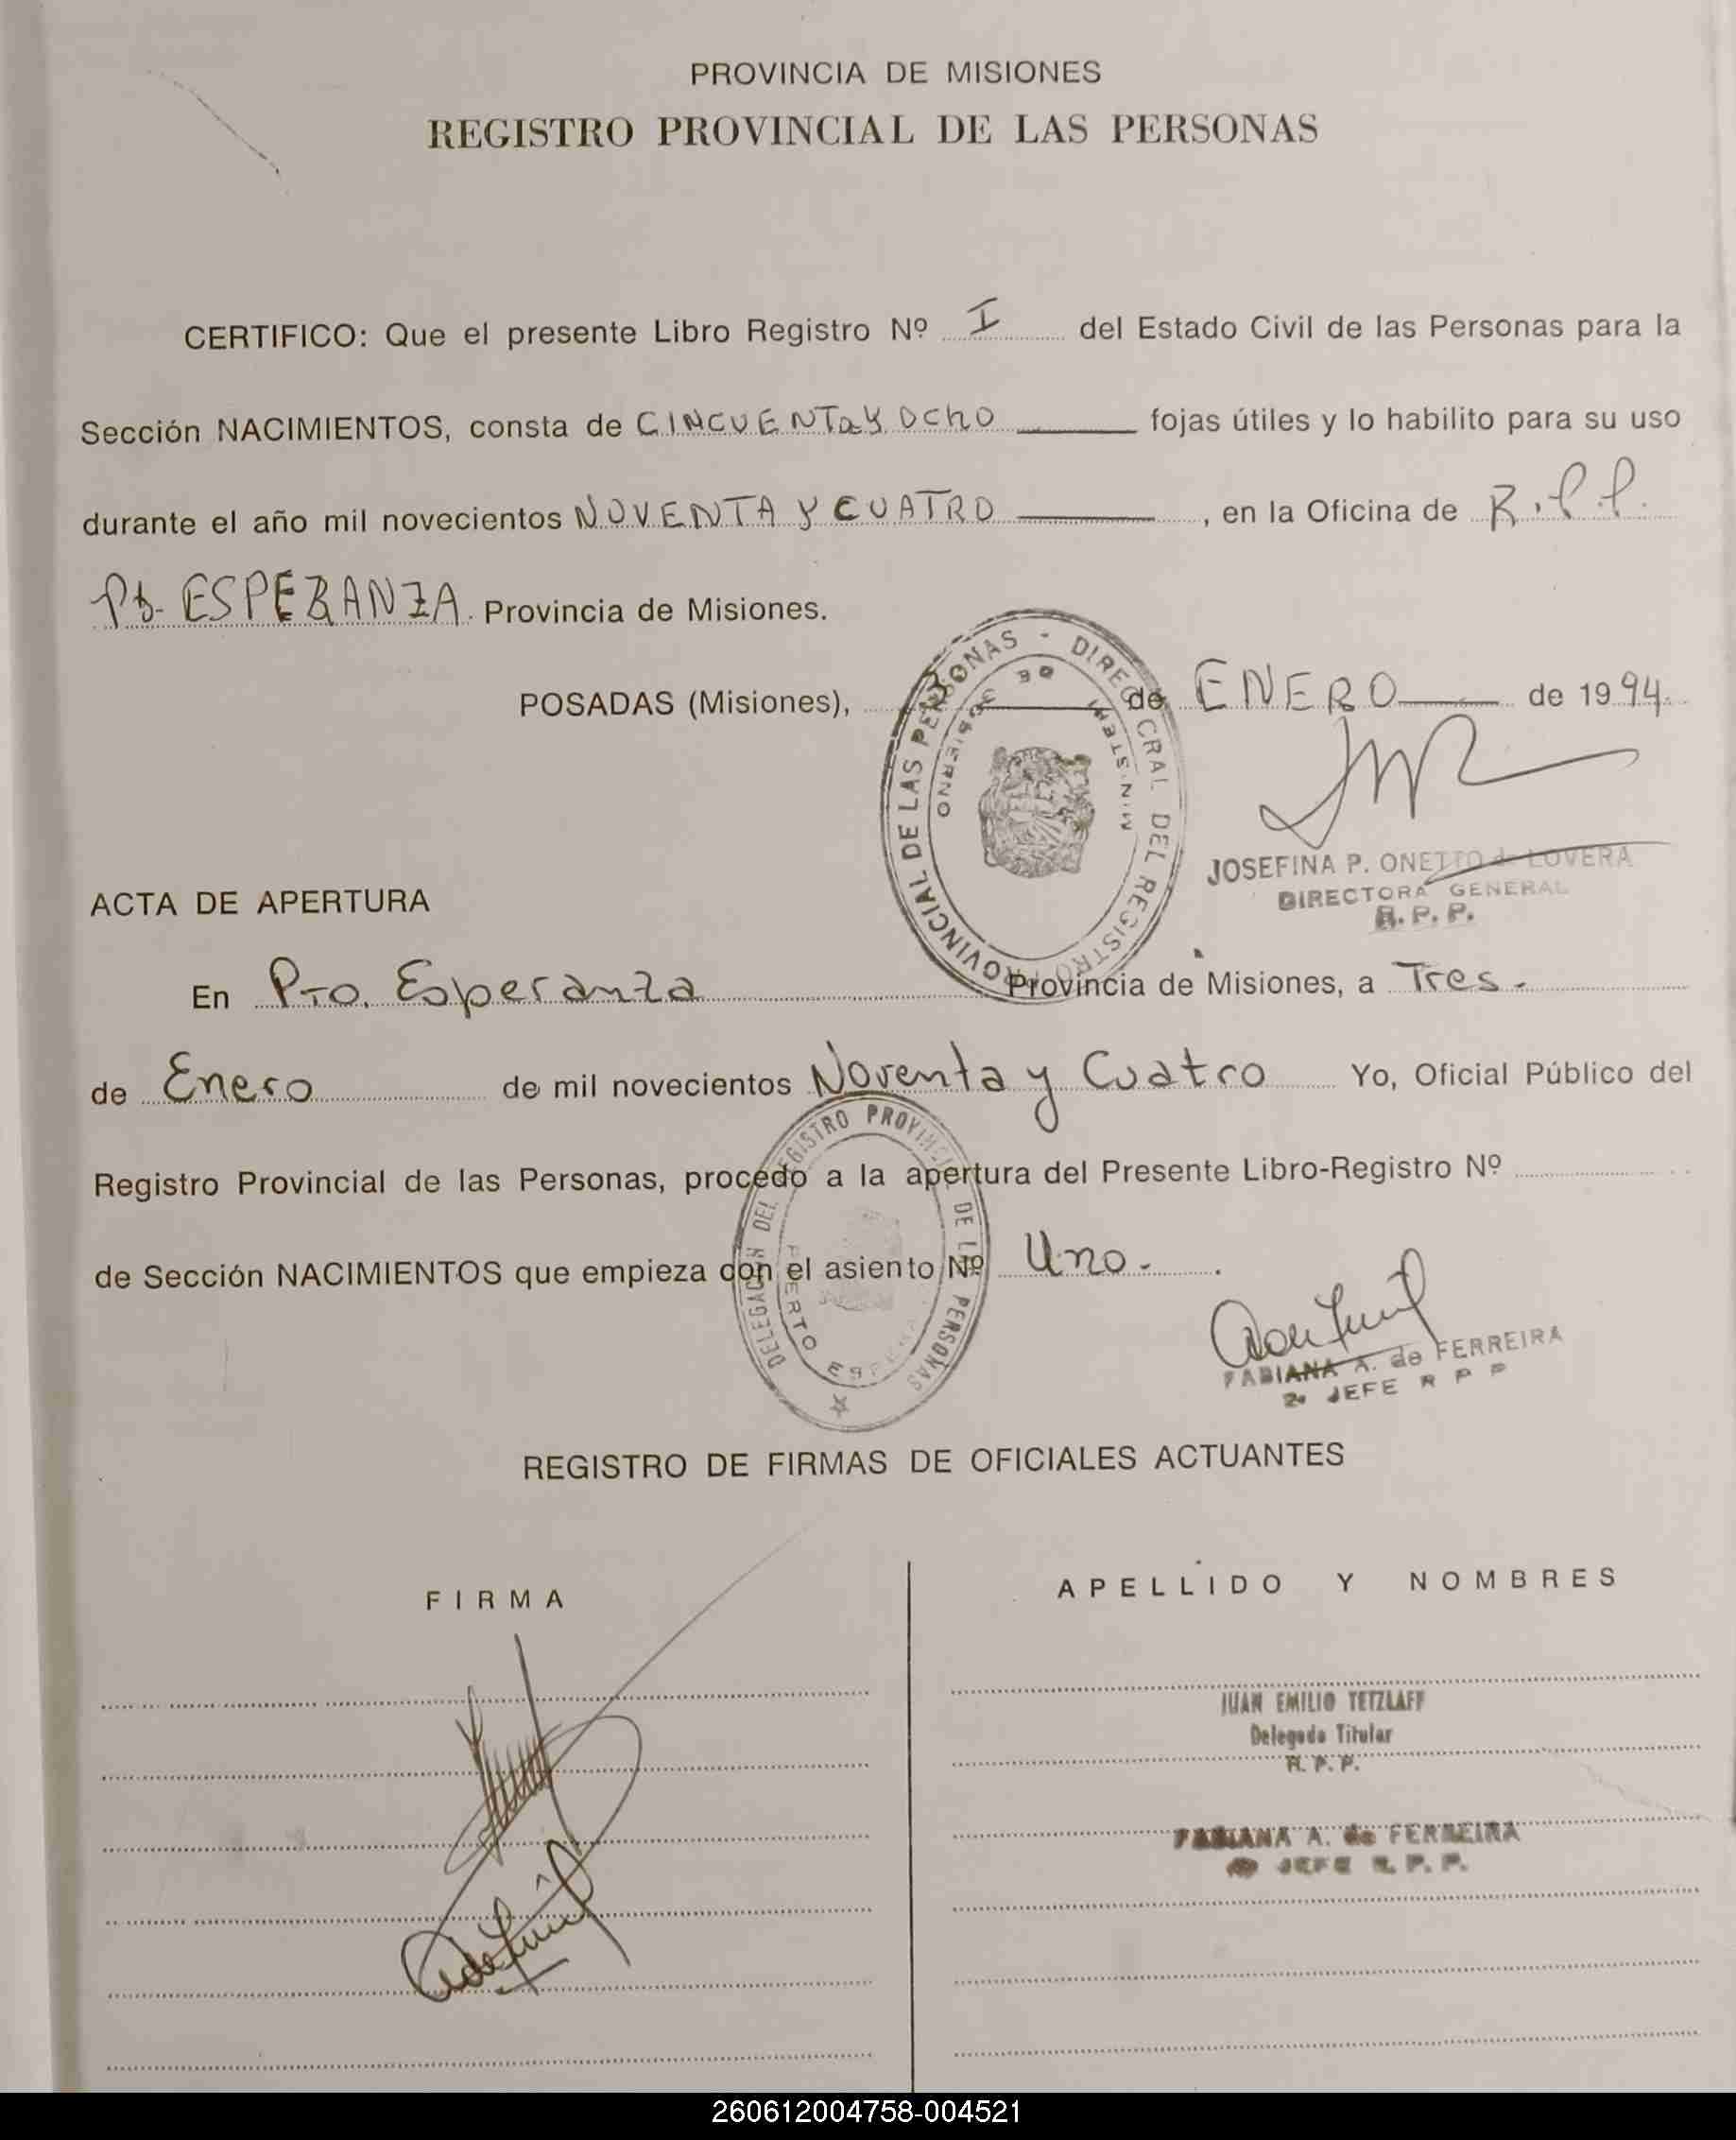 PROVINCIA DE MISIONES
REGISTRO PROVINCIAL DE LAS PERSONAS
CERTIFICO: Que el presente Libro Registro Nº I del Estado Civil de las Personas para la
Sección NACIMIENTOS, consta de CINCUENTA Y OCHO fojas útiles y lo habilito para su uso
durante el año mil novecientos NOVENTA Y CUATRO, en la Oficina de R.P.P.
Pto. ESPERANZA. Provincia de Misiones.
POSADAS (Misiones), de ENERO de 1994.
DIREC GRAL DEL REGISTRO PROVINCIAL DE LAS PERSONAS -
MINISTERIO DE GOBIERNO
JOSEFINA P. ONETTO de LOVERA
DIRECTORA GENERAL
R. P. P.
ACTA DE APERTURA
En Pto. Esperanza Provincia de Misiones, a Tres.
de Enero de mil novecientos Noventa y Cuatro Yo, Oficial Público del
Registro Provincial de las Personas, procedo a la apertura del Presente Libro-Registro Nº
de Sección NACIMIENTOS que empieza con el asiento Nº Uno.
DELEGACION DEL REGISTRO PROVINCIAL DE LAS PERSONAS
PUERTO ESPERANZA
FABIANA A. de FERREIRA
2º JEFE R P P
REGISTRO DE FIRMAS DE OFICIALES ACTUANTES
FIRMA APELLIDO Y NOMBRES
JUAN EMILIO TETZLAFF
Delegado Titular
R. P. P.
FABIANA A. de FERREIRA
JEFE R. P. P.
260612004758-004521